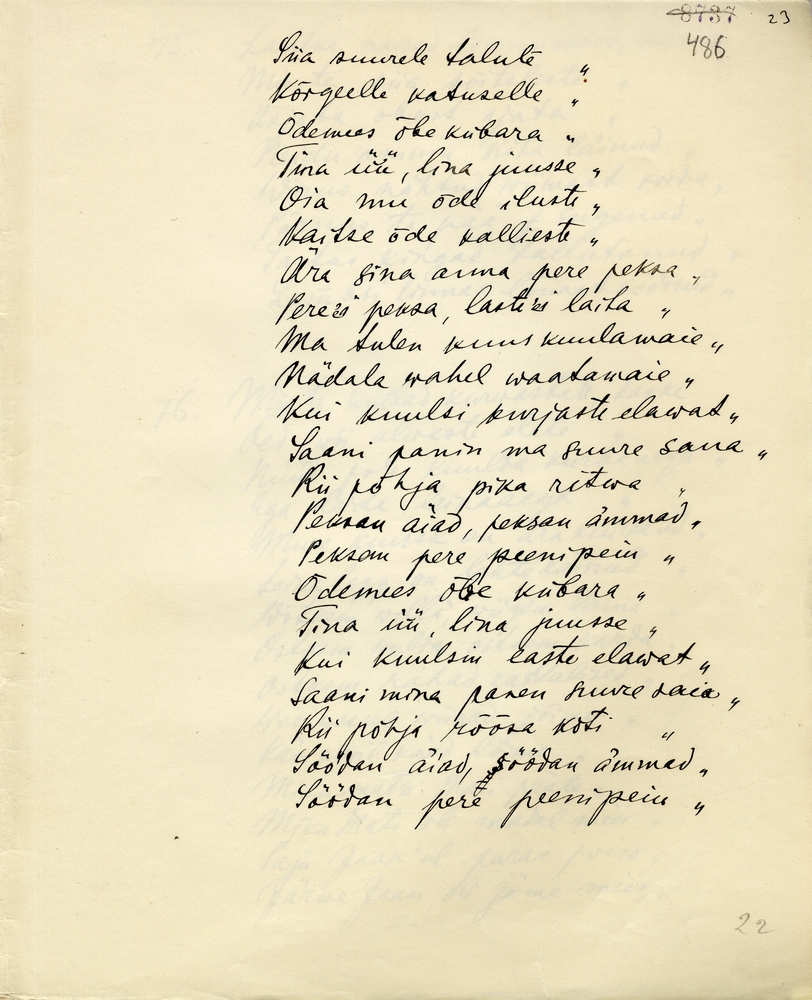 8737 23
486
Siia suurele talule "
Kõrgeelle katuselle "
Ödemees õbe kübara "
Tina üü, lina juusse "
Oia mu öde iluste "
Kaitse öde kallieste "
Ära sina anna pere peksa "
Pere ei peksa, laste ei laita "
Ma tulen kuus kuulamaie "
Nädala wahel waatamaie "
Kui kuulsi kurjaste elawat "
Saani panin ma suure sana "
Rii põhja pika ritwa "
Peksan äiad, peksan ämmad "
Peksan pere peenipein "
Ödemees õbe kübara "
Tina üü, lina juusse "
Kui kuulsin easte elawat "
Saani mina panen suure saia "
Rii põhja röösa koti "
Söödan äiad, söödan ämmad "
Söödan pere peenipein "
22